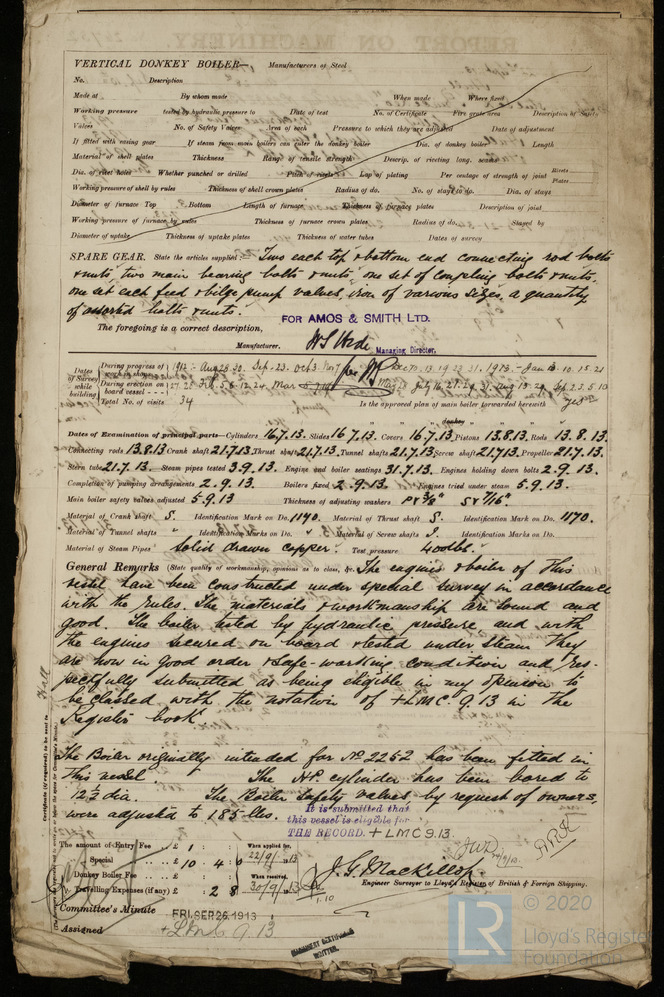 VERTICAL DONKEY BOILER— Manufacturers of Steel
No. Description
Made at By whom made When made Where fixed
Working pressure tested by hydraulic pressure to Date of test No. of Certificate Fire grate area Description of Safety
Valves No. of Safety Valves Area of each Pressure to which they are adjusted Date of adjustment
If fitted with easing gear If steam from main boilers can enter the donkey boiler Dia. of donkey boiler Length
Material of shell plates Thickness Range of tensile strength Descrip. of riveting long. seams
Dia. of rivet holes Whether punched or drilled Pitch of rivets Lap of plating Per centage of strength of joint Rivets
Plates
Working pressure of shell by rules Thickness of shell crown plates Radius of do. No. of stays to do. Dia. of stays
Diameter of furnace Top Bottom Length of furnace Thickness of furnace plates Description of joint
Working pressure of furnace by rules Thickness of furnace crown plates Radius of do. Stayed by
Diameter of uptake Thickness of uptake plates Thickness of water tubes Dates of survey
SPARE GEAR. State the articles supplied:— Two each top & bottom end connecting rod bolts
& nuts, two main bearing bolts & nuts, one set of coupling bolts & nuts,
one set each feed & bilge pump valves, iron of various sizes, a quantity
of assorted bolts & nuts.
FOR AMOS & SMITH LTD.
The foregoing is a correct description,
Manufacturer. Managing Director.
Dates of Survey while building
During progress of work in shops 1912 - Aug 23. 30. Sep. 23. Oct 3. Nov 7 Dec 10. 13. 19. 23. 31. 1913 - Jan 10. 15. 21
During erection on board vessel July 16. 21. 29. 31. Aug 13. 29. Sep. 2. 3. 5. 10
Total No. of visits 34 Is the approved plan of main boiler forwarded herewith Yes
" " " donkey " " "
Dates of Examination of principal parts—Cylinders 16.7.13. Slides 16.7.13. Covers 16.7.13. Pistons 13.8.13. Rods 13.8.13.
Connecting rods 13.8.13 Crank shaft 21.7.13. Thrust shaft 21.7.13. Tunnel shafts 21.7.13 Screw shaft 21.7.13. Propeller 21.7.13.
Stern tube 21.7.13. Steam pipes tested 3.9.13. Engine and boiler seatings 31.7.13. Engines holding down bolts 2.9.13.
Completion of pumping arrangements 2.9.13. Boilers fixed 2.9.13. Engines tried under steam 5.9.13.
Main boiler safety valves adjusted 5.9.13 Thickness of adjusting washers P 3/8" S 7/16"
Material of Crank shaft S. Identification Mark on Do. 1170. Material of Thrust shaft S. Identification Mark on Do. 1170.
Material of Tunnel shafts " Identification Marks on Do. " Material of Screw shafts Identification Marks on Do.
Material of Steam Pipes Solid drawn copper. Test pressure 400 lbs.
General Remarks (State quality of workmanship, opinions as to class, &c. The engines & boiler of this
vessel have been constructed under special survey in accordance
with the rules. The materials & workmanship are sound and
good. The boiler tested by hydraulic pressure and with
the engines secured on board & tested under steam they
are now in good order & safe working condition and res-
pectfully submitted as being eligible in my opinion to
be classed with the notation of +LMC. 9.13 in the
Register book.
The Boiler originally intended for No 2252 has been fitted in
this vessel. The H.P. cylinder has been bored to
12½ dia. The Boiler safety valves, by request of owners,
were adjusted to 185 lbs.
It is submitted that
this vessel is eligible for
THE RECORD. + LMC 9.13.
The amount of Entry Fee £ 1 : : When applied for,
Special £ 10 : 4 : 0 22/9/13
Donkey Boiler Fee £ : : When received,
Travelling Expenses (if any) £ : 2 : 8 30/9/13
J. G. Mackillop.
Engineer Surveyor to Lloyd's Register of British & Foreign Shipping.
Committee's Minute FRI. SEP. 26. 1913
Assigned + LMC 9.13
MACHINERY CERTIFICATE
WRITTEN.
Certificate (if required) to be sent to Hull
© 2020
LR
Lloyd's Register
Foundation